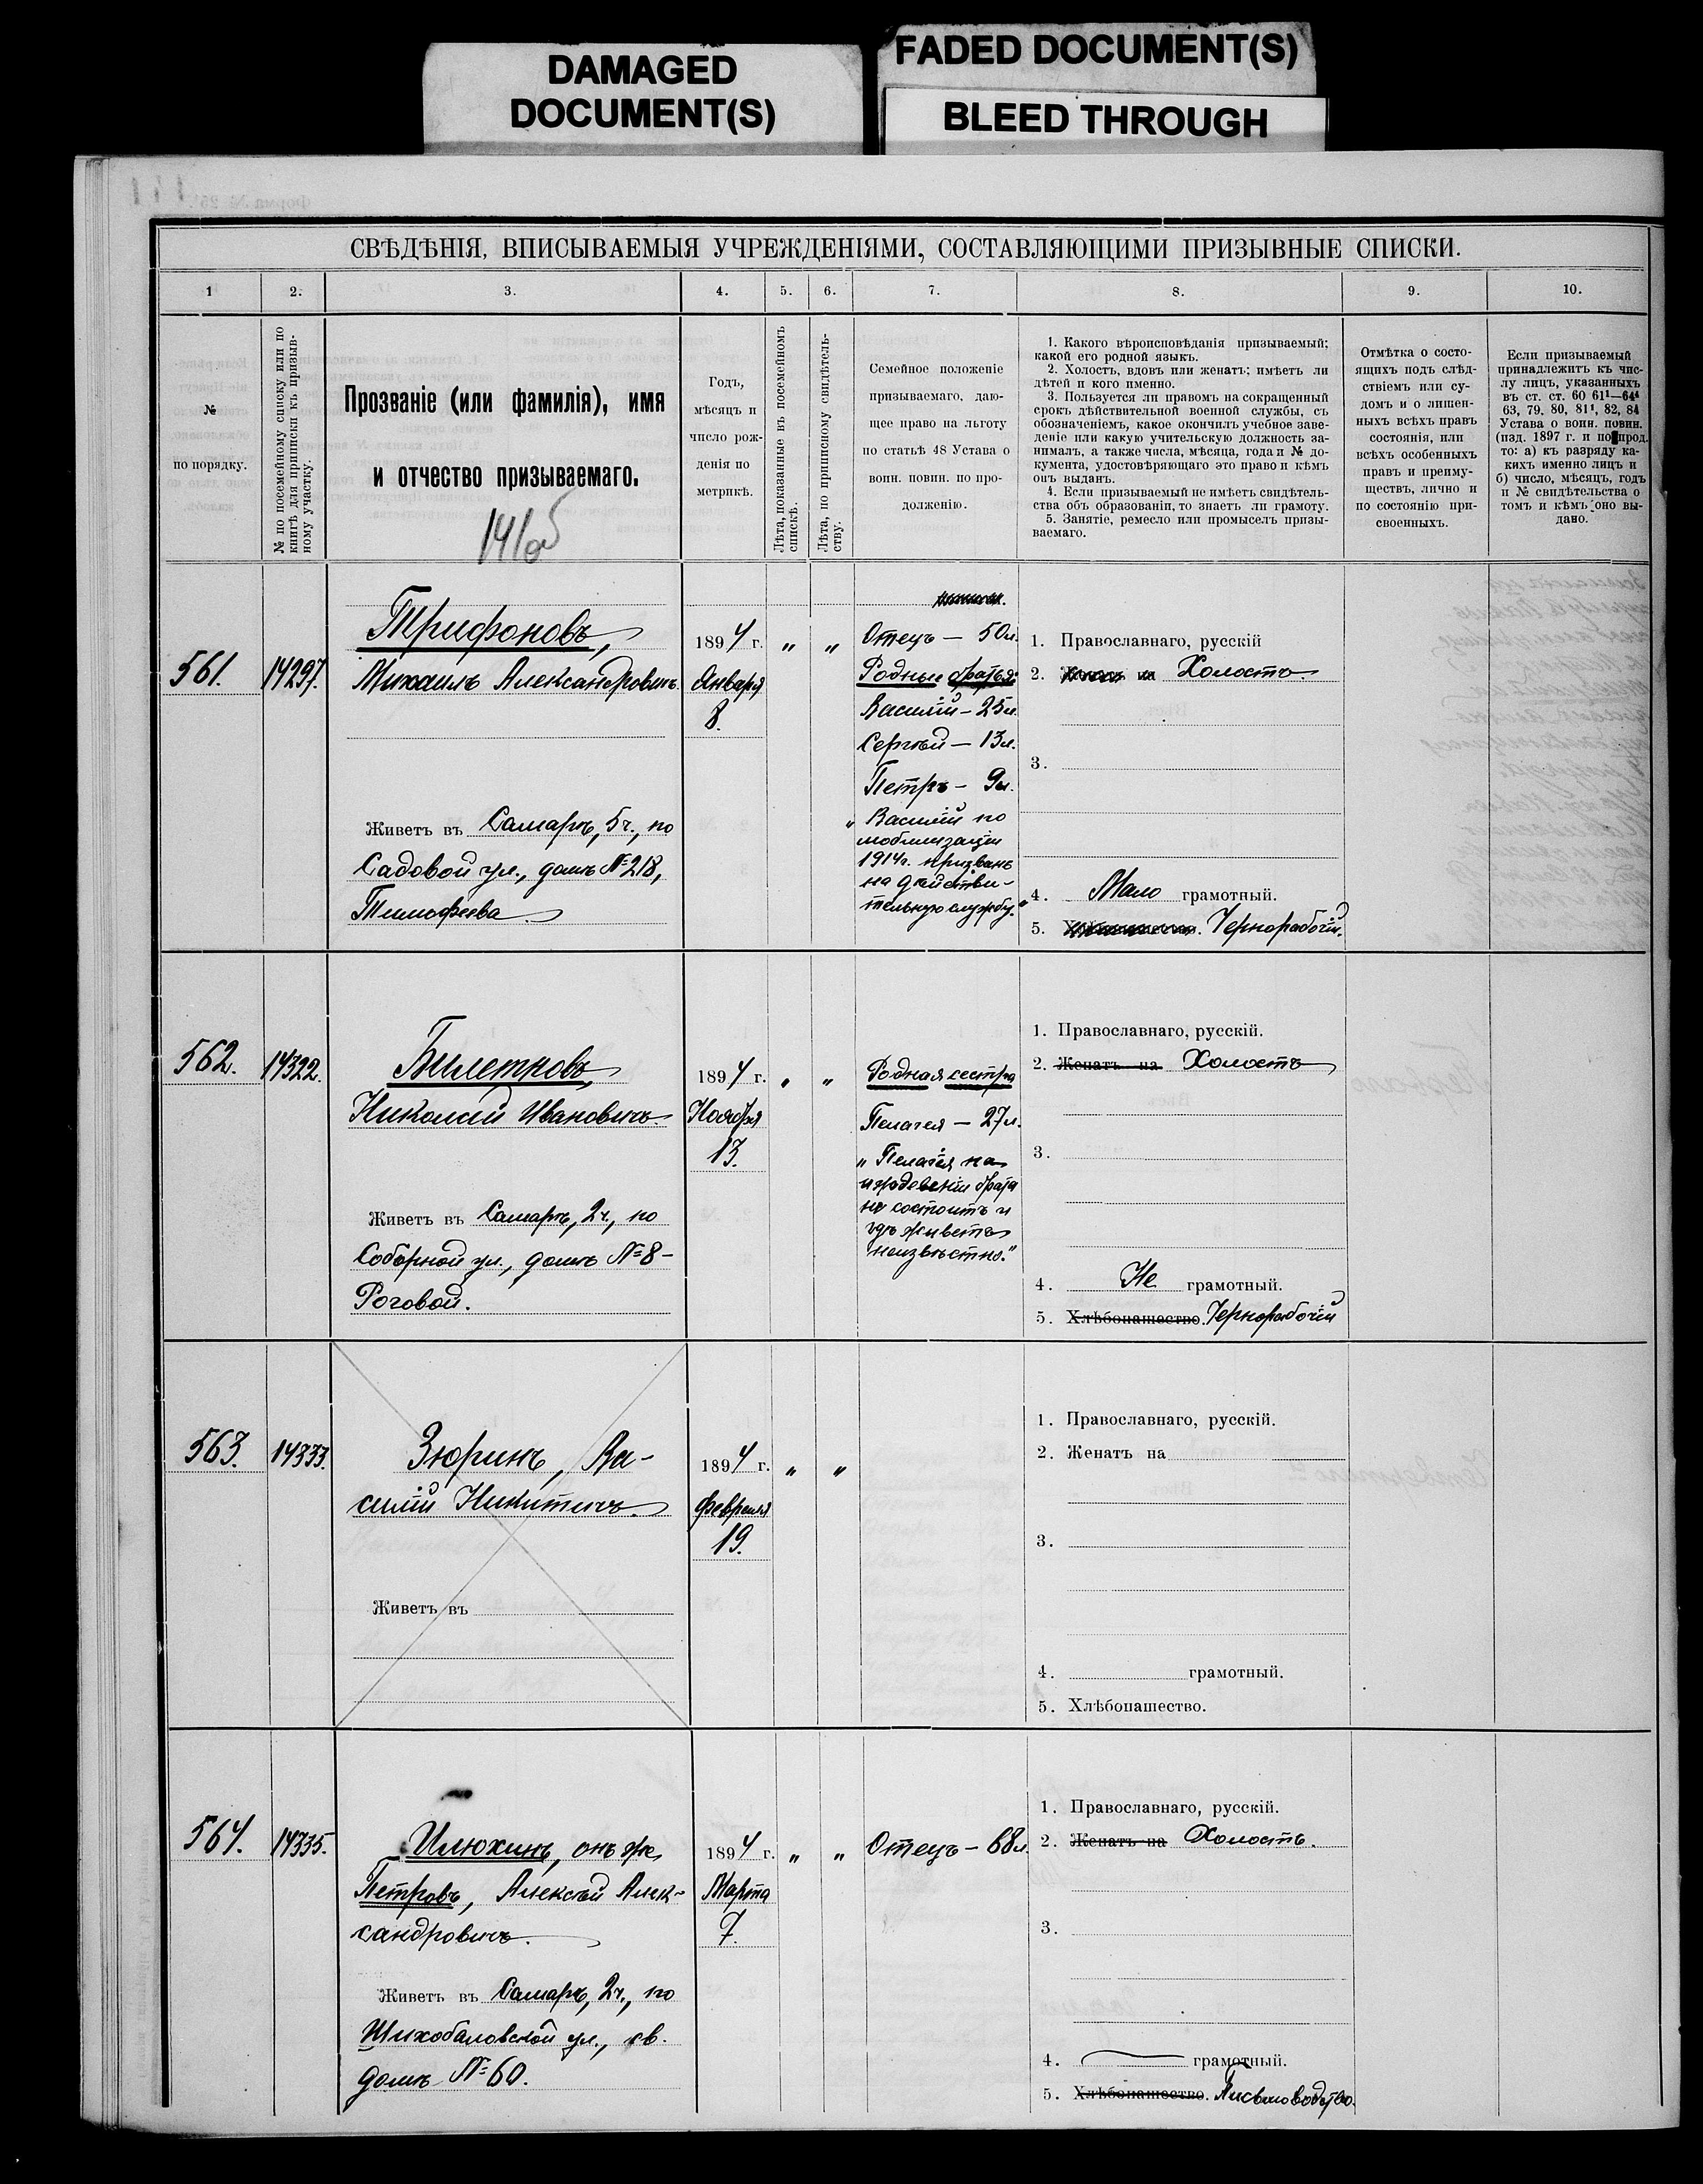 DAMAGED
DOCUMENT(S)
FADED DOCUMENT(S)
BLEED THROUGH
СВѢДѢНІЯ, ВПИСЫВАЕМЫЯ УЧРЕЖДЕНІЯМИ, СОСТАВЛЯЮЩИМИ ПРИЗЫВНЫЕ СПИСКИ.
1
2.
3.
4.
5.
6.
7.
8.
9.
10.
№
по порядку.
№ по посемейному списку или по
книгѣ для приписки къ призыв-
ному участку.
Прозваніе (или фамилія), имя
и отчество призываемаго.
141об
Годъ,
мѣсяцъ и
число рож-
денія по
метрикѣ.
Лѣта, показанныя въ посемейномъ
спискѣ.
Лѣта, по приписному свидѣтель-
ству.
Семейное положеніе
призываемаго, даю-
щее право на льготу
по статьѣ 48 Устава о
воин. повин. по про-
долженію.
1. Какого вѣроисповѣданія призываемый;
какой его родной языкъ.
2. Холостъ, вдовъ или женатъ; имѣетъ ли
дѣтей и кого именно.
3. Пользуется ли правомъ на сокращенный
срокъ дѣйствительной военной службы, съ
обозначеніемъ, какое окончилъ учебное заве-
деніе или какую учительскую должность за-
нималъ, а также числа, мѣсяца, года и № до-
кумента, удостовѣряющаго это право и кѣмъ
онъ выданъ.
4. Если призываемый не имѣетъ свидѣтель-
ства объ образованіи, то знаетъ ли грамоту.
5. Занятіе, ремесло или промыселъ призы-
ваемаго.
Отмѣтка о состо-
ящихъ подъ слѣд-
ствіемъ или су-
домъ и о лишен-
ныхъ всѣхъ правъ
состоянія, или
всѣхъ особенныхъ
правъ и преиму-
ществъ, лично и
по состоянію при-
своенныхъ.
Если призываемый
принадлежитъ къ чис-
лу лицъ, указанныхъ
въ ст. ст. 60 61¹—64⁴
63, 79, 80, 81¹, 82, 84
Устава о воин. повин.
(изд. 1897 г. и по прод.
то: а) къ разряду ка-
кихъ именно лицъ и
б) число, мѣсяцъ, годъ
и № свидѣтельства о
томъ и кѣмъ оно вы-
дано.
561.
14297.
Трифоновъ,
Михаилъ Александровичъ.
Живетъ въ Самарѣ, 5ч., по
Садовой ул., домъ №218,
Тимофеева
1894 г.
Января
8.
"
"
Отецъ — 50л.
Родные братья:
Василій — 23л.
Сергѣй — 13л.
Петръ — 9л.
„Василій по
мобилизаціи
1914г. призванъ
на дѣйстви-
тельную службу."
1. Православнаго, русскій
2. Холостъ
3.
4. Мало грамотный.
5. Чернорабочій.
562.
14322.
Билетковъ,
Николай Ивановичъ.
Живетъ въ Самарѣ, 2ч., по
Соборной ул., домъ №8-
Роговой.
1894 г.
Ноября
13.
"
"
Родная сестра
Пелагея — 27л.
„Пелагея на
иждевеніи брата
не состоитъ и
гдѣ живетъ
неизвѣстно."
1. Православнаго, русскій.
2. Женатъ на Холостъ
3.
4. Не грамотный.
5. Хлѣбопашество. Чернорабочій
563.
14333.
Зюринъ, Ва-
силій Никитичъ.
Живетъ въ
1894 г.
Февраля
19.
"
"
1. Православнаго, русскій.
2. Женатъ на
3.
4. грамотный.
5. Хлѣбопашество.
564.
14335.
Илюхинъ, онъ же,
Петровъ, Алексѣй Алек-
сандровичъ.
Живетъ въ Самарѣ, 2ч., по
Шихобаловской ул., св.
домъ №60.
1894 г.
Марта
7.
"
"
Отецъ — 68л.
1. Православнаго, русскій.
2. Женатъ на Холостъ.
3.
4. грамотный.
5. Хлѣбопашество. Письмоводство.